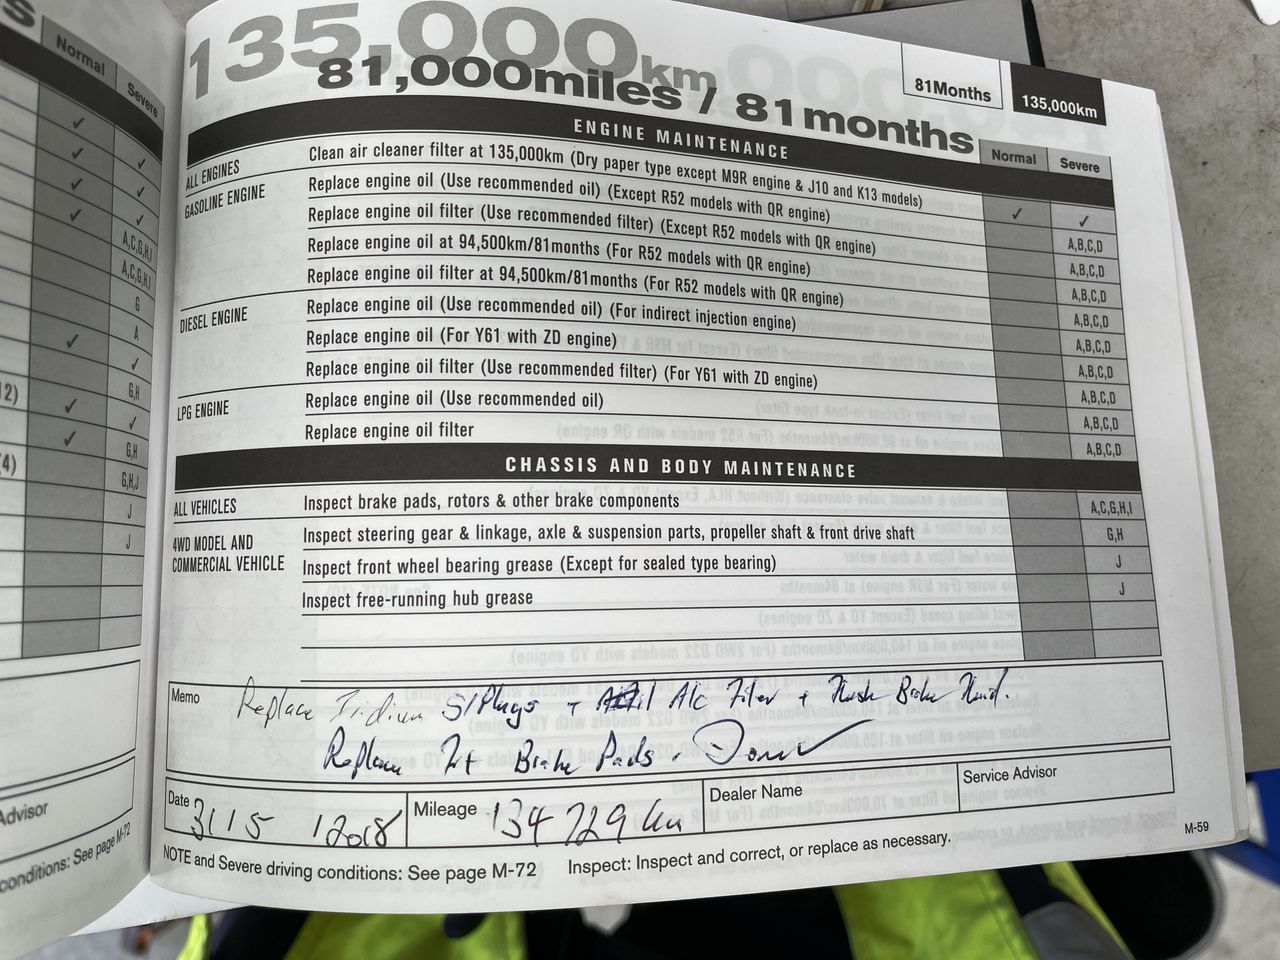 s
Normal
Severe
✓
✓
✓
✓
✓
✓
✓
A,C,G,H,I
A,C,G,H,I
G
A
✓
✓
12)
G,H
✓
✓
✓
(4)
G,H
G,H,J
J
J
Advisor
conditions: See page M-72
135,000km
81,000miles / 81months
81Months
135,000km
ENGINE MAINTENANCE
Normal
Severe
ALL ENGINES
Clean air cleaner filter at 135,000km (Dry paper type except M9R engine & J10 and K13 models)
✓
✓
GASOLINE ENGINE
Replace engine oil (Use recommended oil) (Except R52 models with QR engine)
A,B,C,D
Replace engine oil filter (Use recommended filter) (Except R52 models with QR engine)
A,B,C,D
Replace engine oil at 94,500km/81months (For R52 models with QR engine)
A,B,C,D
Replace engine oil filter at 94,500km/81months (For R52 models with QR engine)
A,B,C,D
DIESEL ENGINE
Replace engine oil (Use recommended oil) (For indirect injection engine)
A,B,C,D
Replace engine oil (For Y61 with ZD engine)
A,B,C,D
Replace engine oil filter (Use recommended filter) (For Y61 with ZD engine)
A,B,C,D
LPG ENGINE
Replace engine oil (Use recommended oil)
A,B,C,D
Replace engine oil filter
A,B,C,D
CHASSIS AND BODY MAINTENANCE
ALL VEHICLES
Inspect brake pads, rotors & other brake components
A,C,G,H,I
4WD MODEL AND
COMMERCIAL VEHICLE
Inspect steering gear & linkage, axle & suspension parts, propeller shaft & front drive shaft
G,H
Inspect front wheel bearing grease (Except for sealed type bearing)
J
Inspect free-running hub grease
J
Memo
Replace Iridium S/Plugs + A/c Filter + Flush Brake Fluid.
Replace Brake Pads. Done ✓
Date 31 / 5 / 2018
Mileage 134 729 km
Dealer Name
Service Advisor
NOTE and Severe driving conditions: See page M-72
Inspect: Inspect and correct, or replace as necessary.
M-59